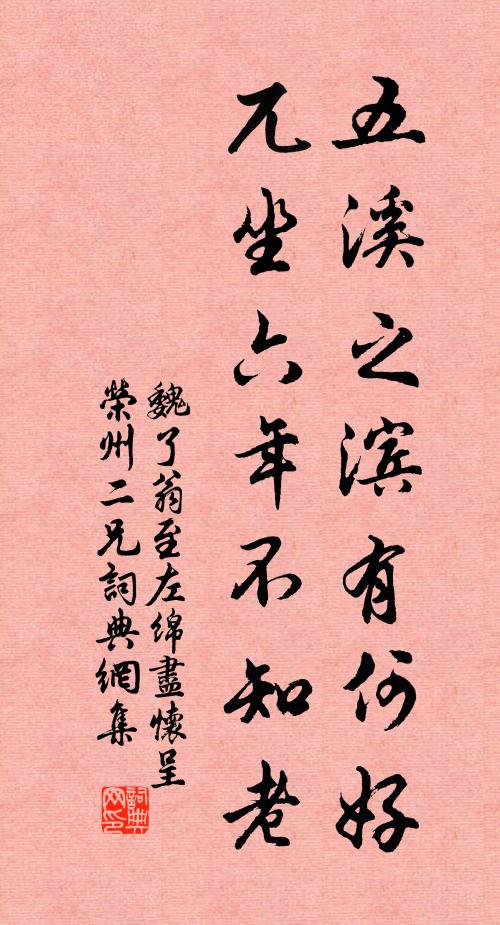 五溪之滨有何好
兀坐六年不知老
魏了翁至左绵盡懷呈
榮州二兄詞典網集
詞典网印